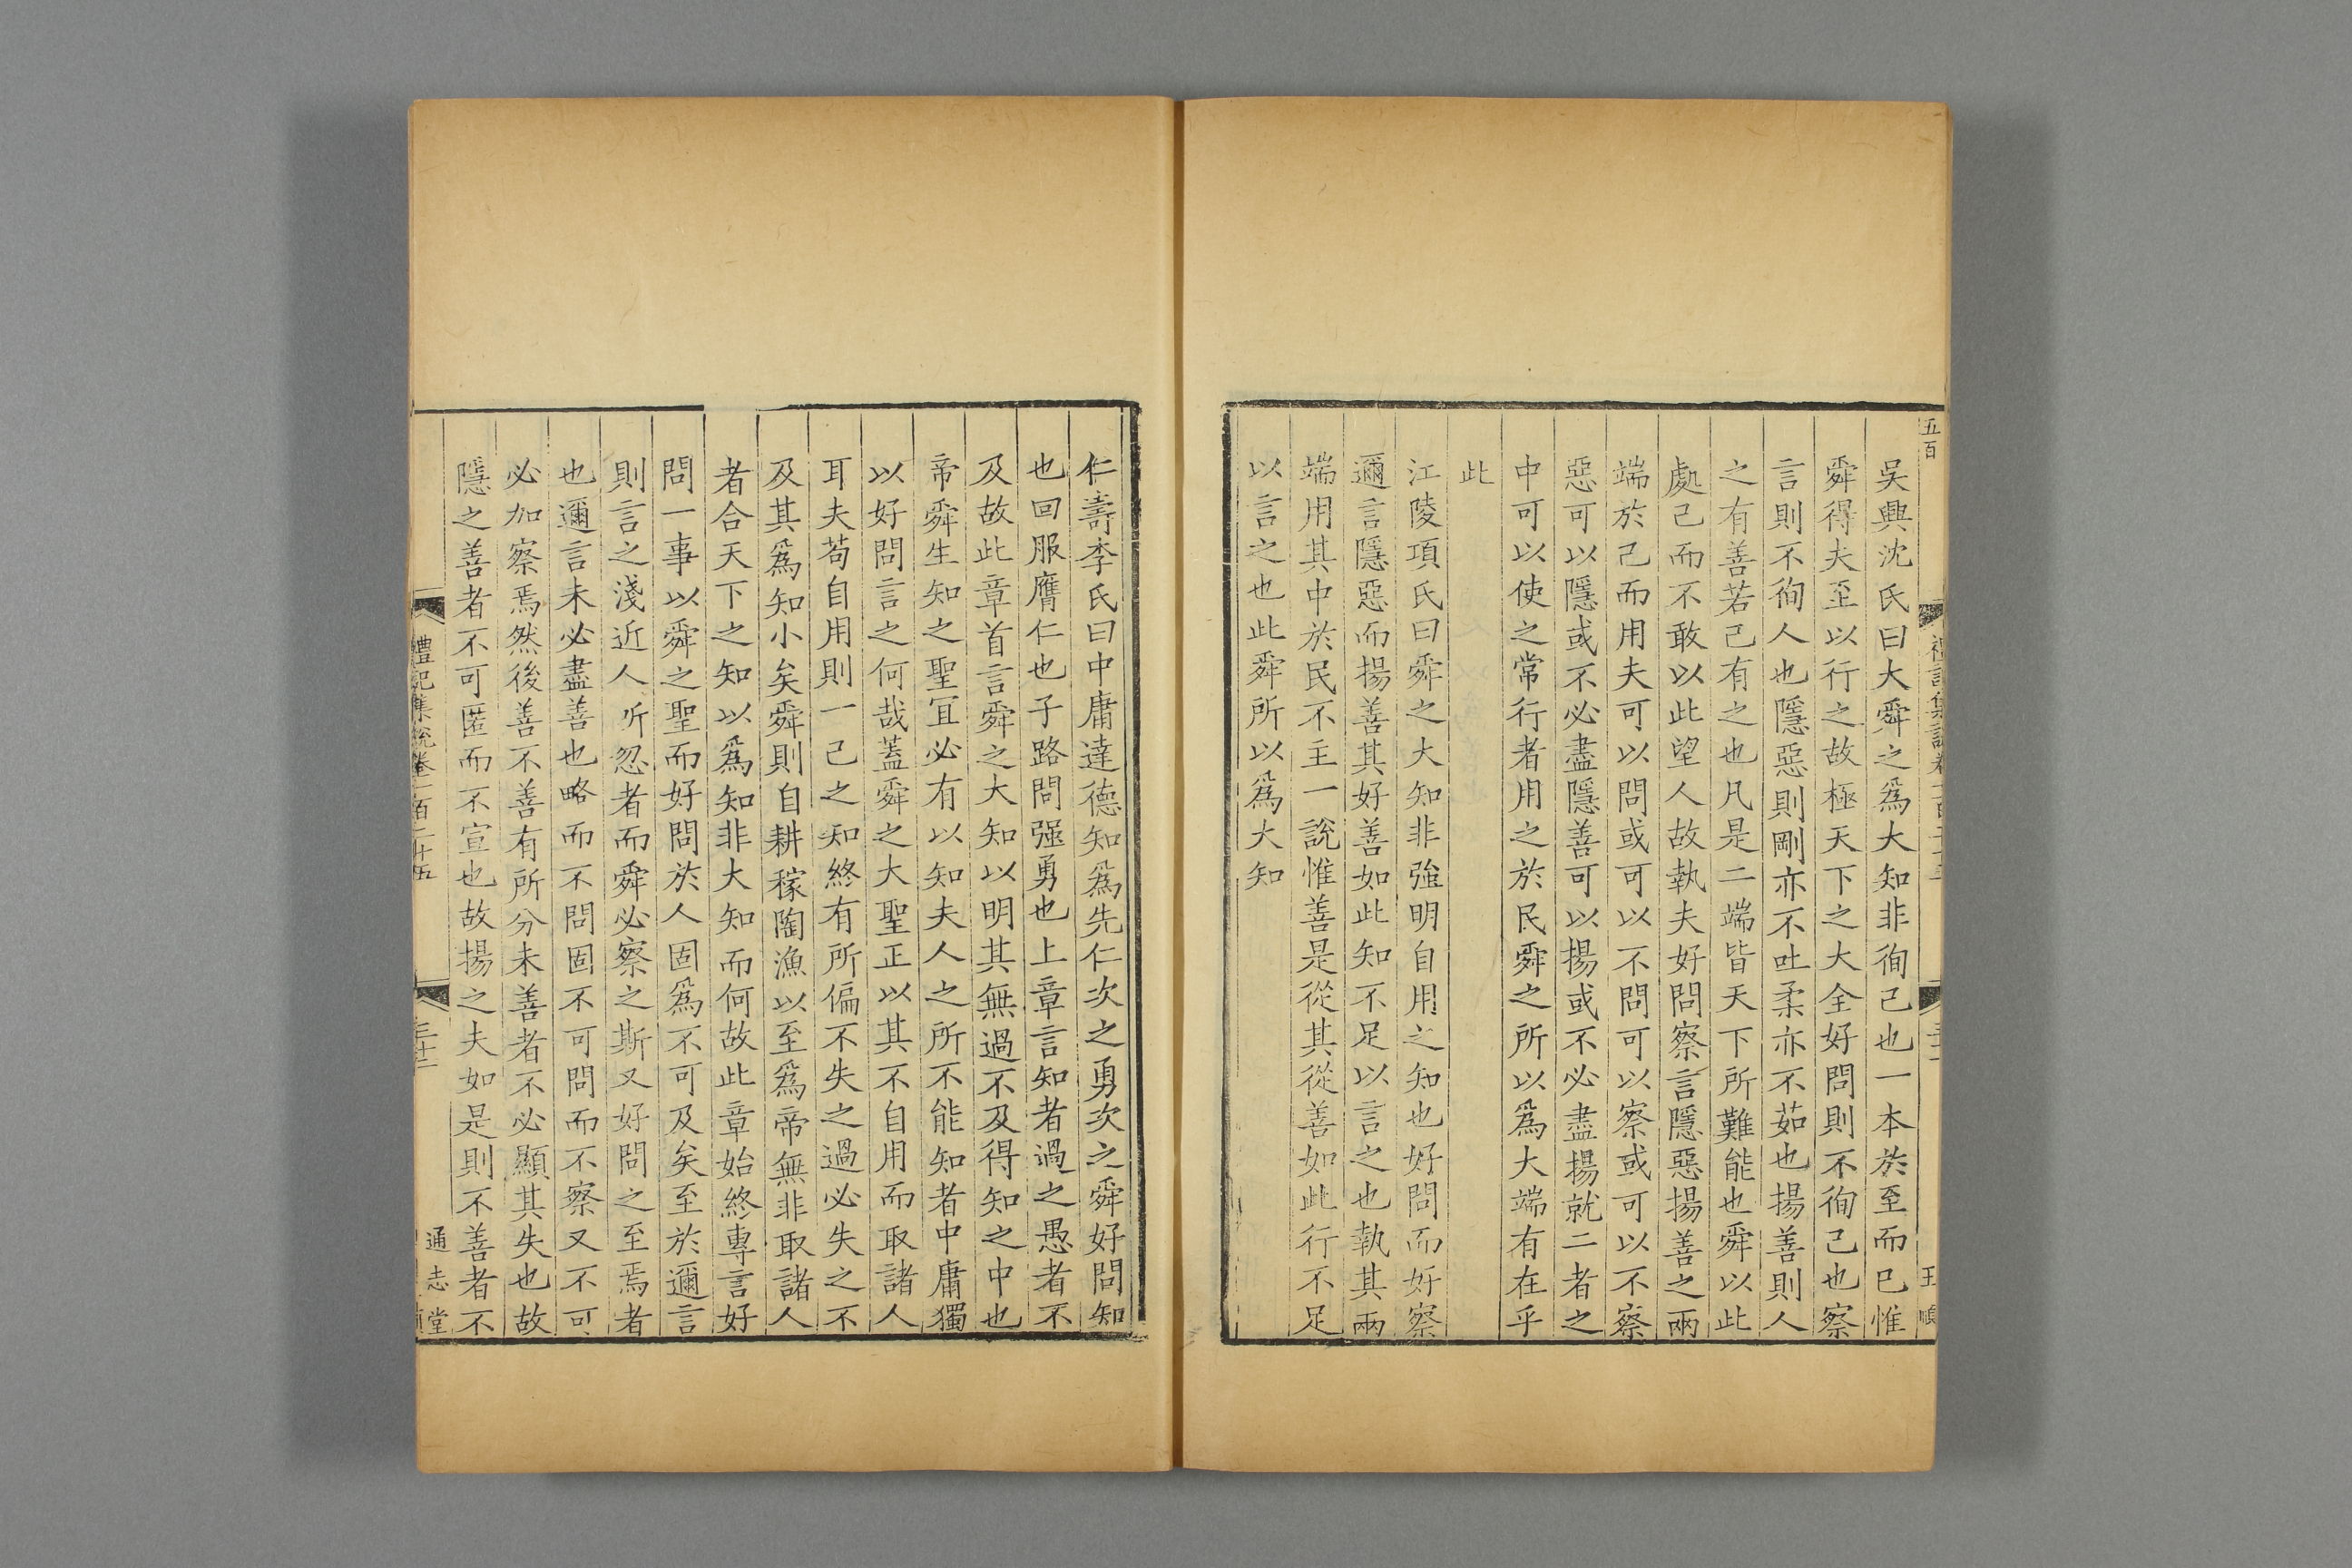 五百
吳興沈氏曰大舜之爲大知非徇己也一本於至而已惟
舜得夫至以行之故極天下之大全好問則不徇己也察
言則不徇人也隱惡則剛亦不吐柔亦不茹也揚善則人
之有善若己有之也凡是二端皆天下所難能也舜以此
處己而不敢以此望人故執夫好問察言隱惡揚善之兩
端於己而用夫可以問或可以不問可以察或可以不察
惡可以隱或不必盡隱善可以揚或不必盡揚就二者之
中可以使之常行者用之於民舜之所以爲大端有在乎
此
江陵項氏曰舜之大知非強明自用之知也好問而好察
邇言隱惡而揚善其好善如此知不足以言之也執其兩
端用其中於民不主一說惟善是從其從善如此行不足
以言之也此舜所以爲大知
仁壽李氏曰中庸達德知爲先仁次之勇次之舜好問知
也回服膺仁也子路問强勇也上章言知者過之愚者不
及故此章首言舜之大知以明其無過不及得知之中也
帝舜生知之聖宜必有以知夫人之所不能知者中庸獨
以好問言之何哉蓋舜之大聖正以其不自用而取諸人
耳夫苟自用則一己之知終有所偏不失之過必失之不
及其爲知小矣舜則自耕稼陶漁以至爲帝無非取諸人
者合天下之知以爲知非大知而何故此章始終專言好
問一事以舜之聖而好問於人固爲不可及矣至於邇言
則言之淺近人所忽者而舜必察之斯又好問之至焉者
也邇言未必盡善也略而不問固不可問而不察又不可
必加察焉然後善不善有所分未善者不必顯其失也故
隱之善者不可匿而不宣也故揚之夫如是則不善者不
禮記集說卷一百二十五
三十二
通志堂